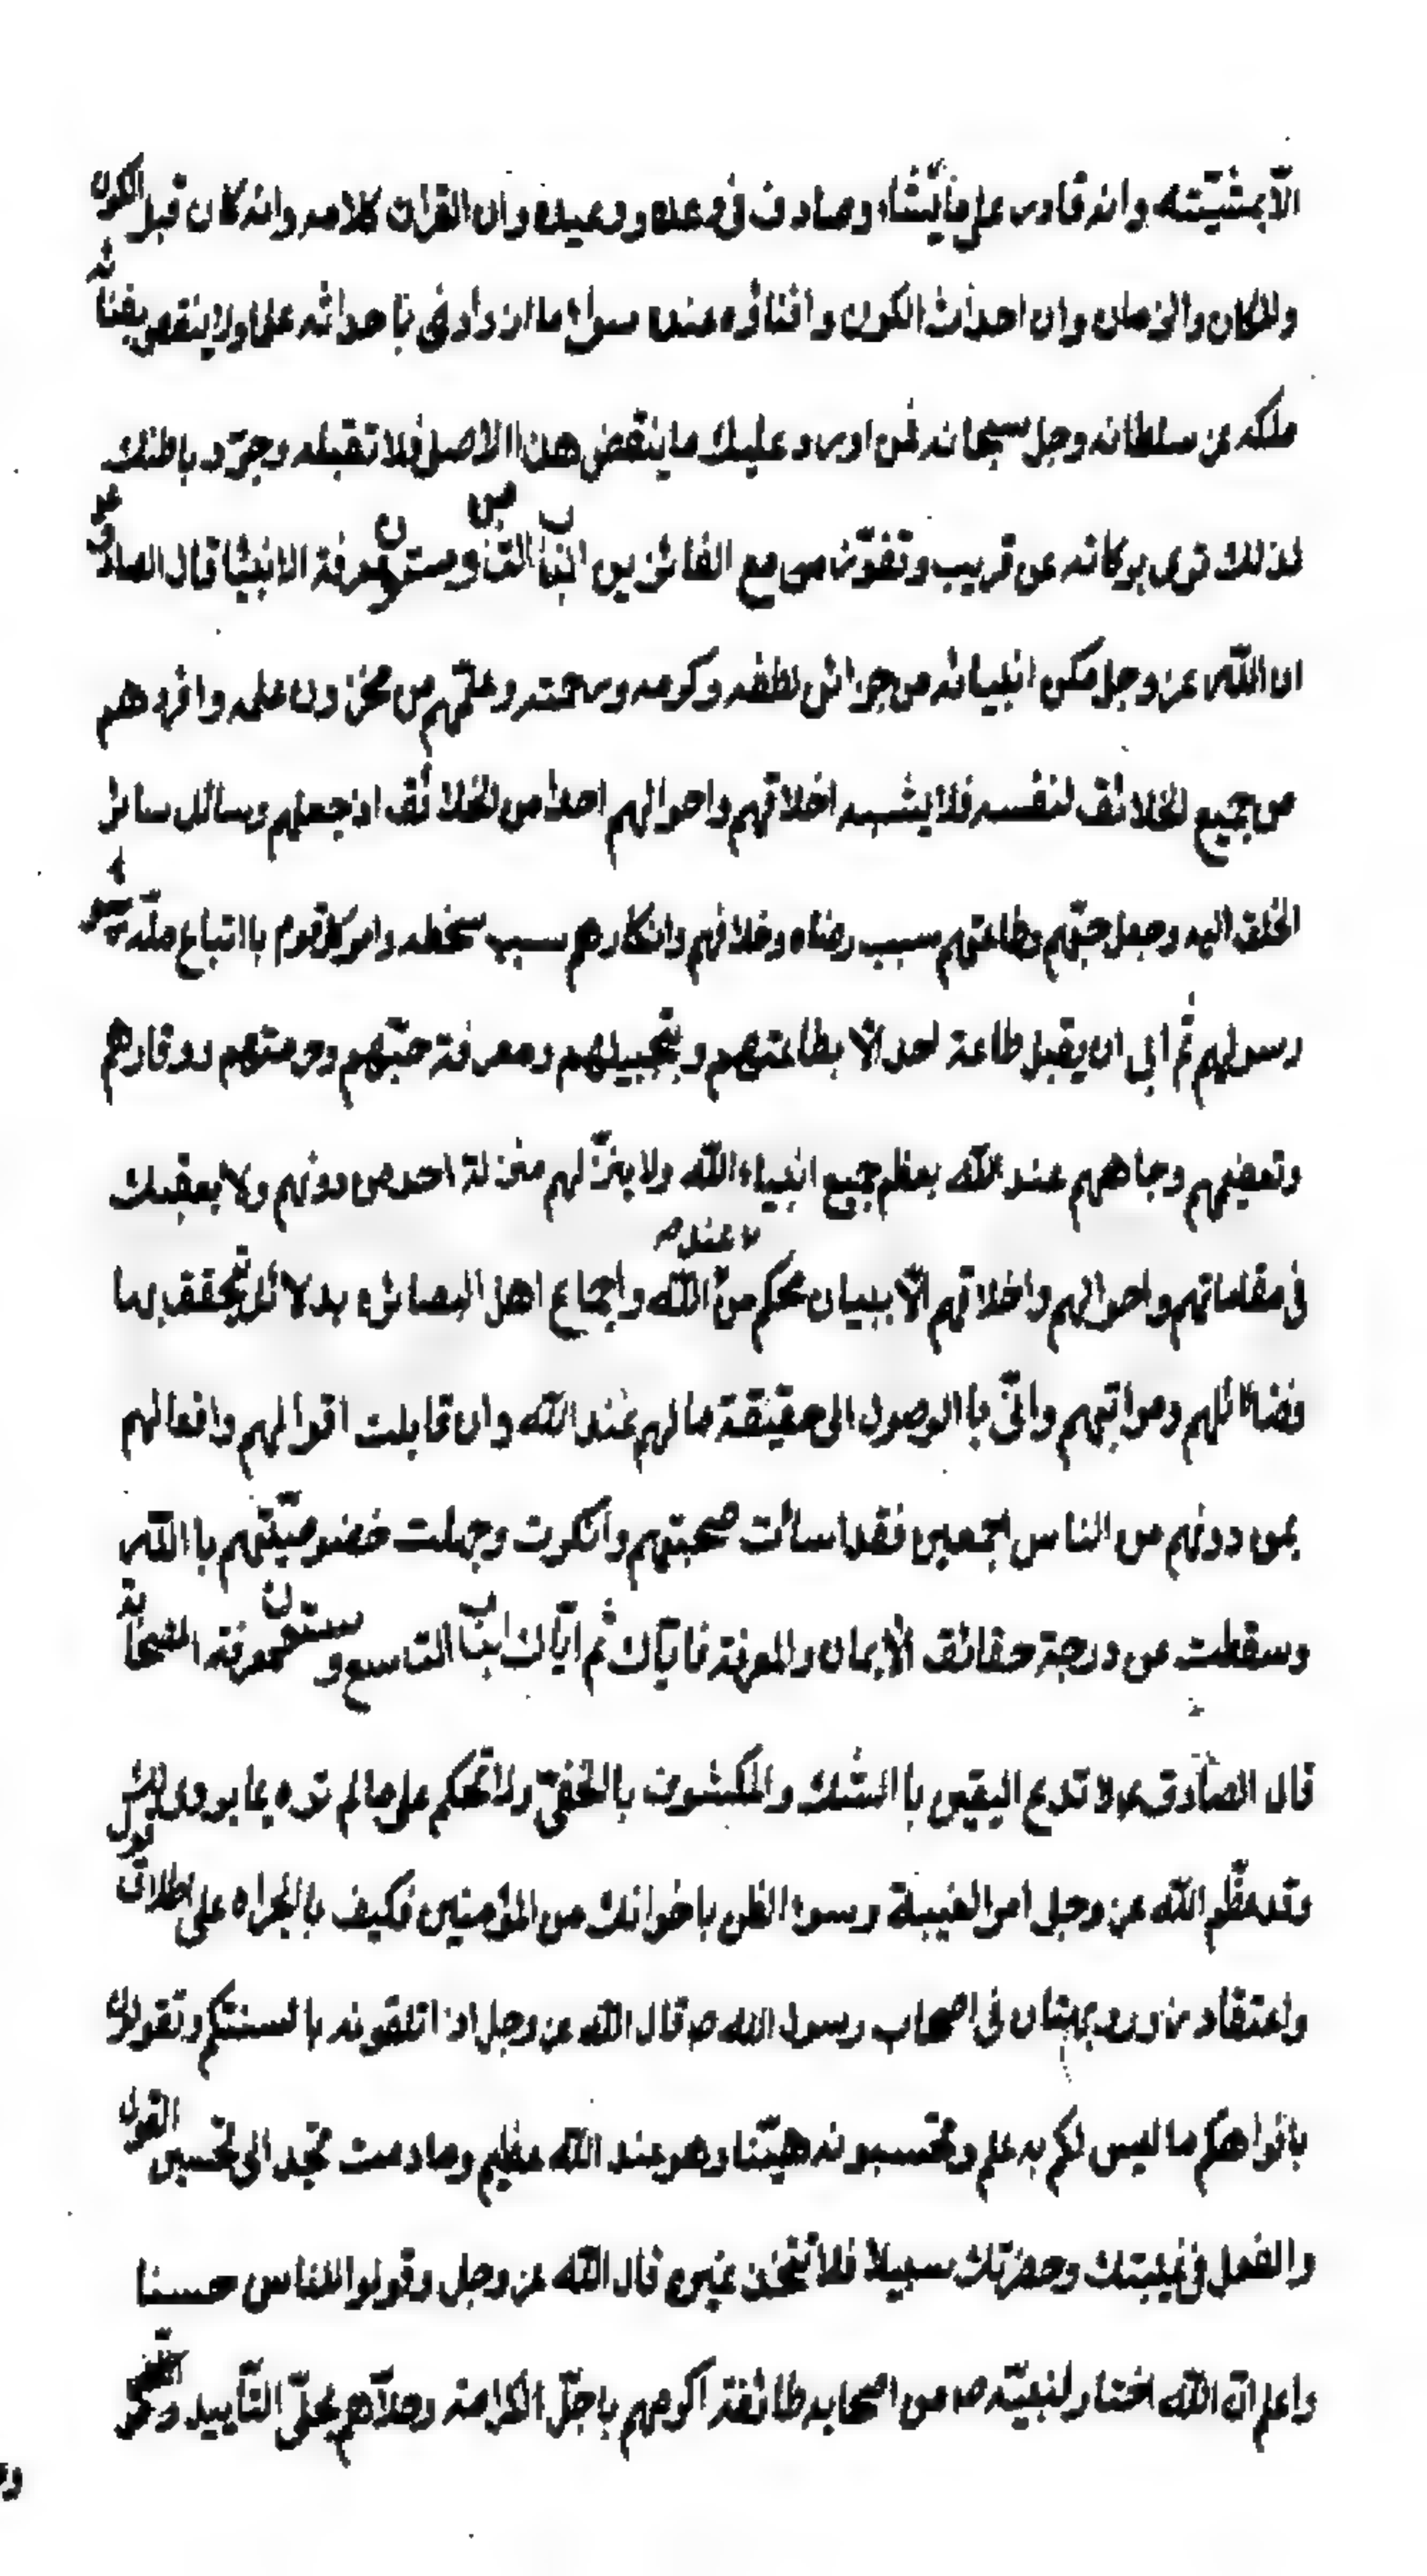 الّا بمشيّته وانه قادر على ما يشاء وصادق في وعده ووعيده وان القران كلامه وانه كان قبل الكون
والمكان والزمان وان احداث الكون وافناؤه عنده سواء ما ازداد في باحداثه علما ولا ينقص بفنائه
ملكه عز سلطانه وجل سبحانه فمن اورد عليك ما ينقض هذا الاصل فلا تقبله وجرّد باطنك
لذلك ترى بركاته عن قريب وتفوّز مع الفائزين الباب الثامن وستون معرفة الانبيا قال الصادق ع
ان الله عز وجل مكن انبيائه من خزائن لطفه وكرمه ورحمته وعلّمهم من مخزون علمه وافردهم
من جميع الخلائق لنفسه فلا يشبه اخلاقهم واحوالهم احدا من الخلائق اذ جعلهم وسائل سائر
الخلق اليه وجعل حبّهم وطاعتهم سبب رضاه وخلافهم وانكارهم سبب سخطه وامر كل قوم با اتباع ملّة
رسولهم ثم ابى ان يقبل طاعة احد الّا بطاعتهم وبتجبيلهم ومعرفة حبّهم وحرمتهم ووقارهم
وتعضيمهم وجاههم عند الله بعظم جميع انبياء الله ولا ينزّلهم منزلة احد من دونهم ولا بعقلك
في مقاماتهم واحوالهم واخلاقهم الّا ببيان محكم من عند الله واجماع اهل البصائر بدلائل يتحقق بها
فضائلهم ومراتبهم وانّى با الوصول الى حقيقة ما لهم عند الله وان قابلت اقوالهم وافعالهم
بمن دونهم من الناس اجمعين فقد اسات صحبتهم وانكرت وجهلت خضوصيّتهم با الله
وسقطت عن درجة حقائق الايمان والمعرفة فايّاك ثم ايّاك الباب التاسع وستون معرفة الصّحابة
قال الصّادق ع لا تدع اليقين با الشّك والمكشوف با الخفىّ ولا تحكم على ما لم تره بما يروى
وقد عظّم الله عز وجل امر الغيبة وسوء الظن باخوانك من المؤمنين فكيف با لجراه على اطلاق قول
واعتقاد زور وبهتان في اصحاب رسول الله ص قال الله عز وجل اذ اتلقونه با لسنتكم وتقولون
بافواهكم ما ليس لكم به علم وتحسبونه هيّنا وهو عند الله عظيم وما دمت تجد الى تحسين القول
والفعل في غيبتك وحضرتك سبيلا فلا تتخذ غيره قال الله عز وجل وقولوا للناس حسنا
واعلم انّ الله اختار لنبيّه ص من اصحابه طائفة اكرمهم باجلّ الكرامة وحلّاهم بحلىّ التّأييد